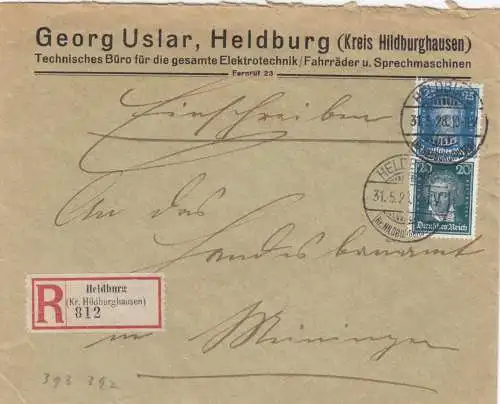 Georg Uslar, Heldburg (Kreis Hildburghausen)
Technisches Büro für die gesamte Elektrotechnik / Fahrräder u. Sprechmaschinen
Fernruf 23
Einschreiben
25 25
31.5.28.
20 20
Deutsches Reich
31.5.2
An das
Landesbauamt
in Meiningen
R
Heldburg
(Kr. Hildburghausen)
812
393 392